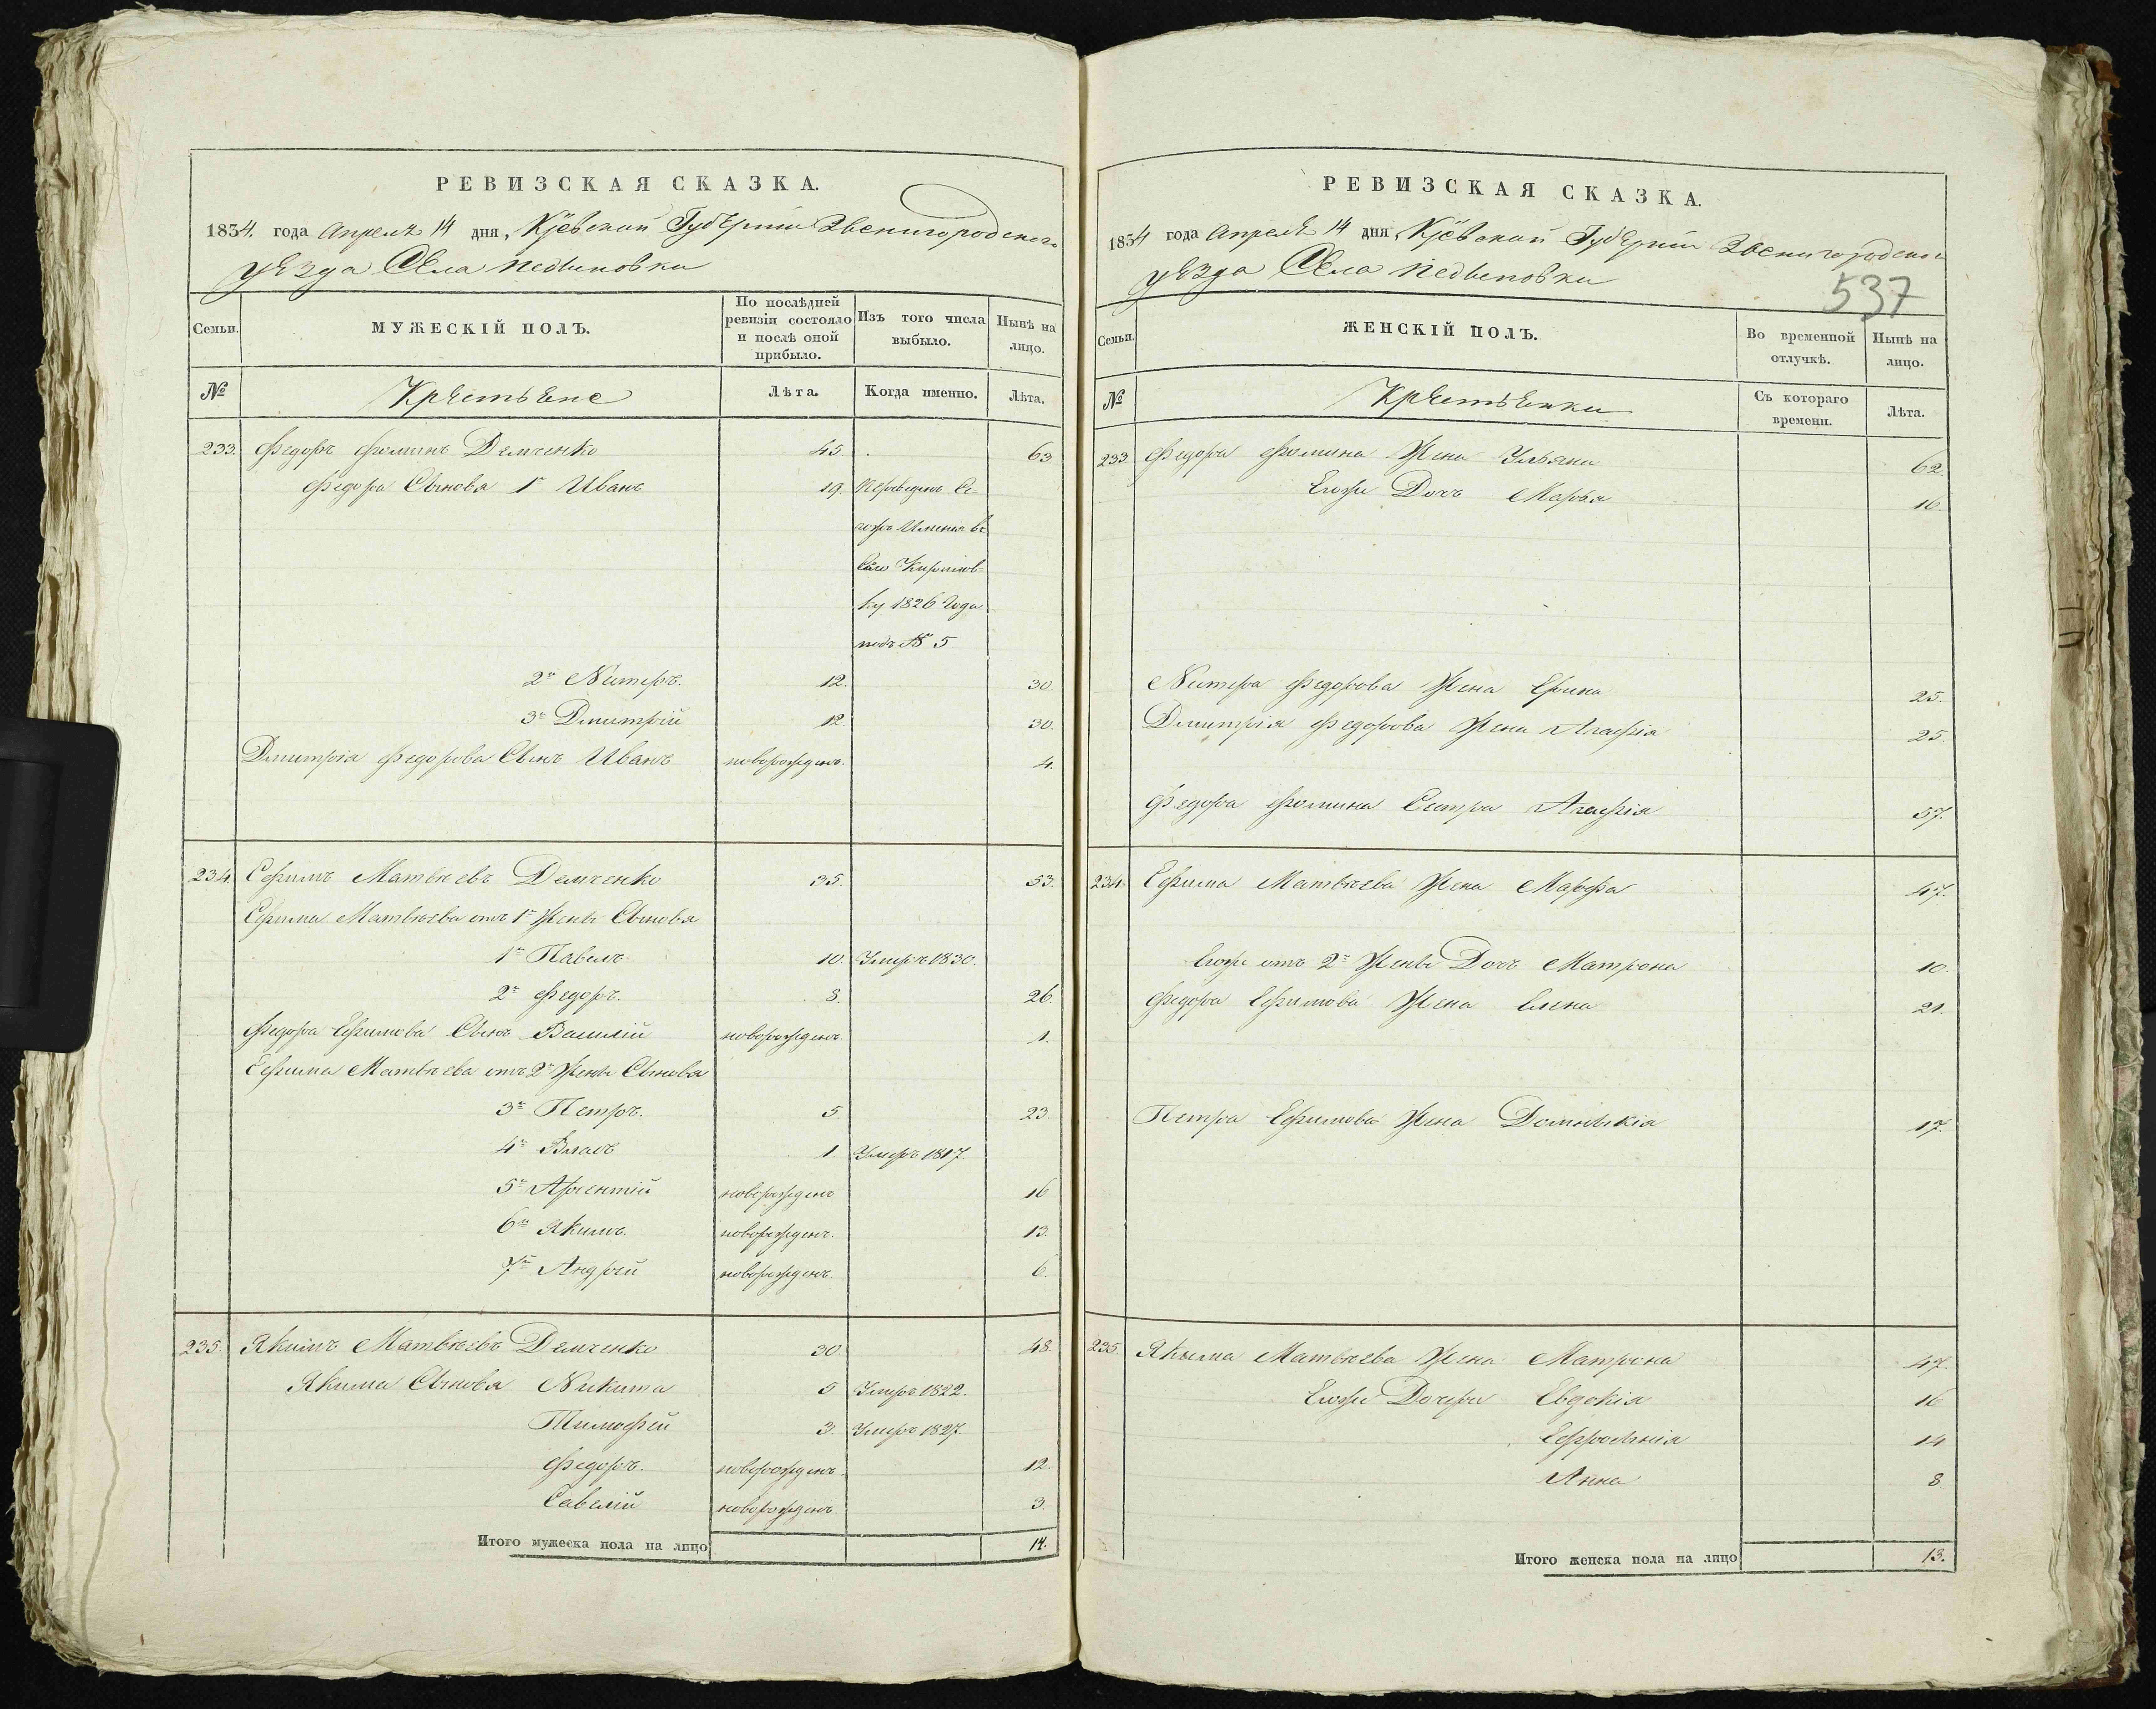 РЕВИЗСКАЯ СКАЗКА.
1834. года Апреля 14 дня, Кіевской Губерніи Звенигородского
уезда Села
Семьи.
МУЖЕСКІЙ ПОЛЪ.
По послѣдней ревизіи состояло и послѣ оной прибыло.
Изъ того числа выбыло.
Нынѣ на лицо.
№
Крестьяне
Лѣта.
Когда именно.
Лѣта.
233. Федоръ Фоминъ Демченко 45. 63.
Федора Сыновья 1й Иванъ 19. Переведенъ се-
гожъ Имения въ
Село Кирилов-
ку 1826 Года
подъ № 5
2й 12. 30.
3й Дмитрій 12. 30.
Дмитрія Федорова Сынъ Иванъ новорожденъ. 4.
234. Ефимъ Матвеевъ Демченко 35. 53.
Ефима Матвеева отъ 1й Жены Сыновья
1й Павелъ 10. Умеръ 1830.
2й Федоръ. 8. 26.
Федора Ефимова Сынъ Василій новорожденъ. 1.
Ефима Матвеева отъ 2й Жены Сыновья
3й Петръ. 5. 23.
4й Власъ 1. Умеръ 1817.
5й новорожденъ 16
6й Якимъ. новорожденъ. 13.
7й Андрей новорожденъ. 6.
235. Якимъ Матвеевъ Демченко 30. 48.
Якима Сыновья Никита 5 Умеръ 1822.
Тимофей 3. Умеръ 1827.
Федоръ. новорожденъ. 12.
Савелій новорожденъ 3.
Итого мужеска пола на лицо 14.
РЕВИЗСКАЯ СКАЗКА.
1834 года Апреля 14 дня, Кіевской Губерніи Звенигородского
уезда Села
537
Семьи.
ЖЕНСКІЙ ПОЛЪ.
Во временной отлучкѣ.
Нынѣ на лицо.
№
Крестьянки
Съ котораго времени.
Лѣта.
233. Федора Фомина Жена Ульяна 62.
Егоже Дочь Марья 16.
Федорова Жена Ирина 25.
Дмитрія Федорова Жена Агафія 25.
Федора Фомина Сестра Агафія 57.
234. Ефима Матвеева Жена Марфа 47.
Егоже отъ 2й Жены Дочь Матрона 10.
Федора Ефимова Жена Елена 21.
Петра Ефимова Жена Домникія 17.
235. Якима Матвеева Жена Матрона 47.
Егоже Дочери Евдокія 16
Ефросинія 14
Анна 8
Итого женска пола на лицо 13.